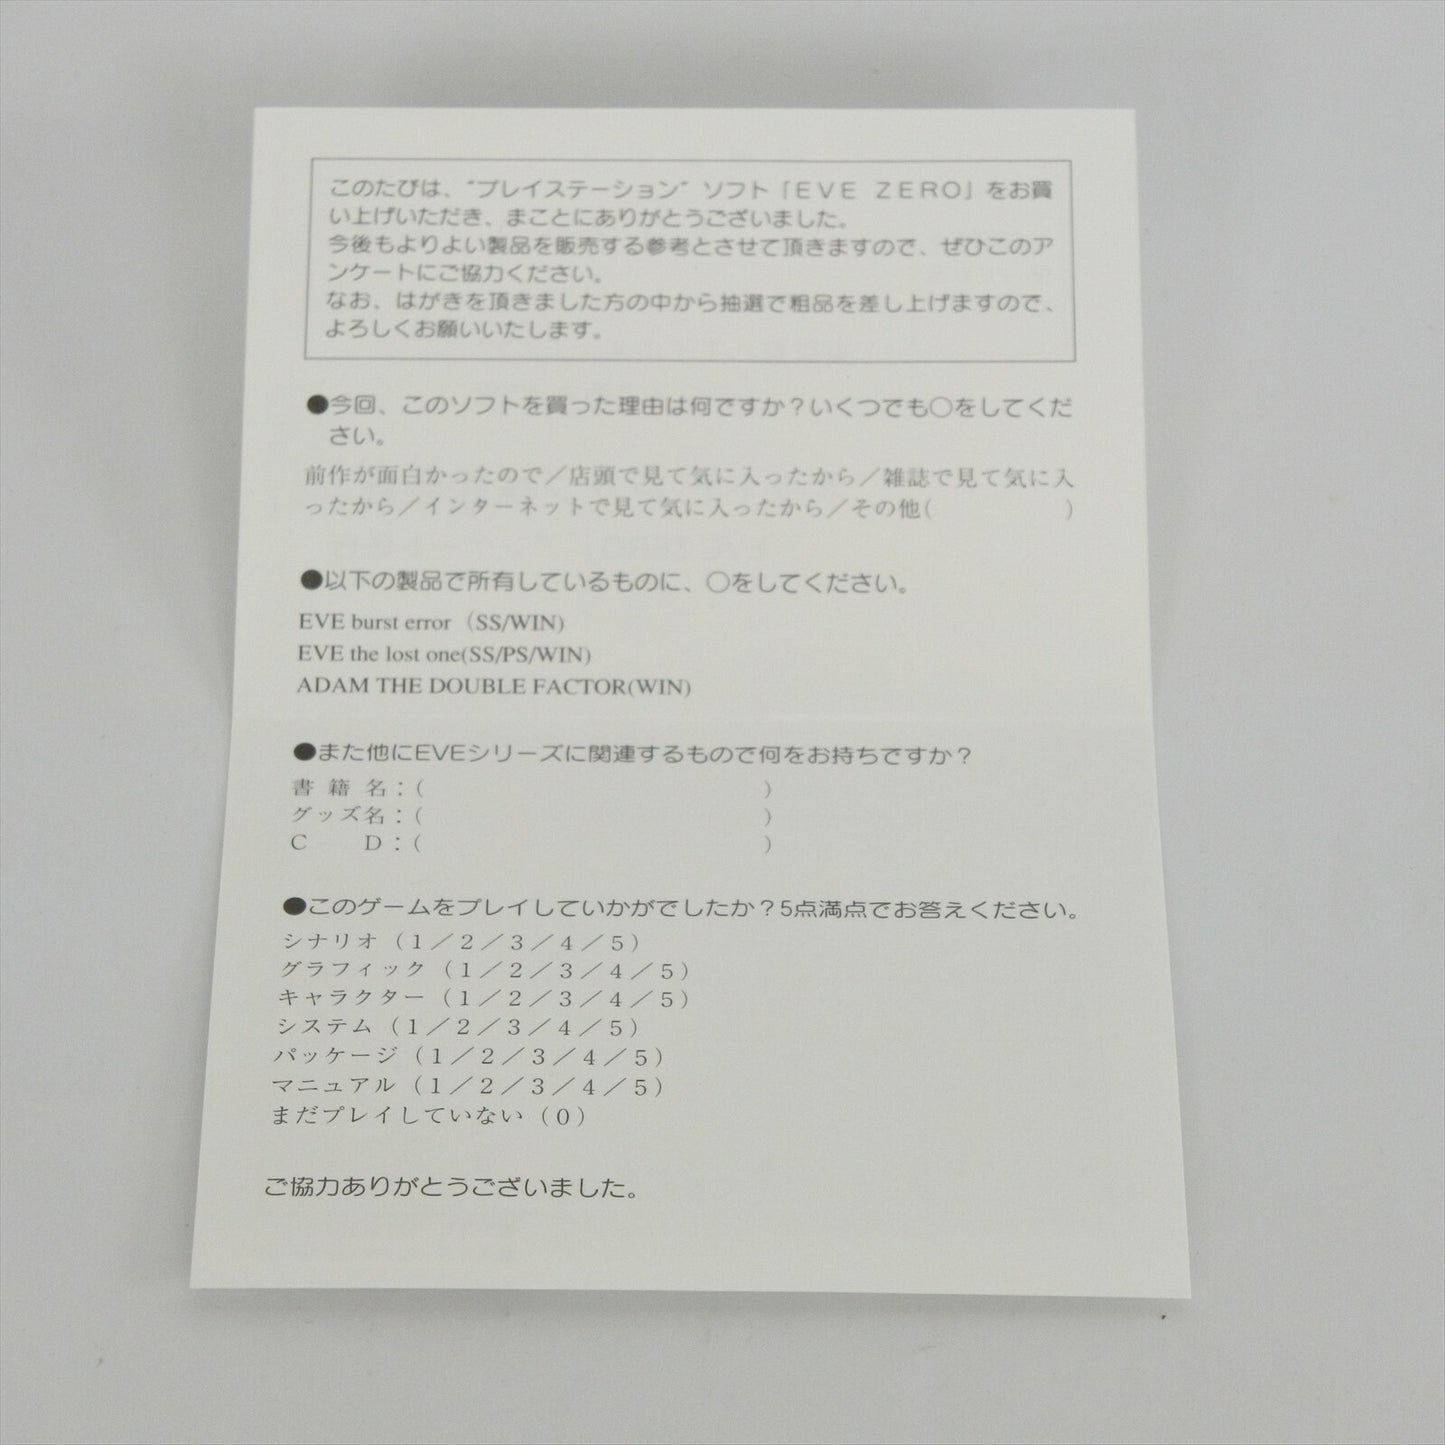 このたびは、"プレイステーション"ソフト「EVE ZERO」をお買
い上げいただき、まことにありがとうございました。
今後もよりよい製品を販売する参考とさせて頂きますので、ぜひこのア
ンケートにご協力ください。
なお、はがきを頂きました方の中から抽選で粗品を差し上げますので、
よろしくお願いいたします。
●今回、このソフトを買った理由は何ですか？いくつでも○をしてくだ
さい。
前作が面白かったので／店頭で見て気に入ったから／雑誌で見て気に入
ったから／インターネットで見て気に入ったから／その他(　　　　　　)
●以下の製品で所有しているものに、○をしてください。
EVE burst error（SS/WIN)
EVE the lost one(SS/PS/WIN)
ADAM THE DOUBLE FACTOR(WIN)
●また他にEVEシリーズに関連するもので何をお持ちですか？
書 籍 名：(　　　　　　　　　　　　　　　)
グッズ名：(　　　　　　　　　　　　　　　)
C　　D：(　　　　　　　　　　　　　　　)
●このゲームをプレイしていかがでしたか？5点満点でお答えください。
シナリオ（１／２／３／４／５）
グラフィック（１／２／３／４／５）
キャラクター（１／２／３／４／５）
システム（１／２／３／４／５）
パッケージ（１／２／３／４／５）
マニュアル（１／２／３／４／５）
まだプレイしていない（０）
ご協力ありがとうございました。